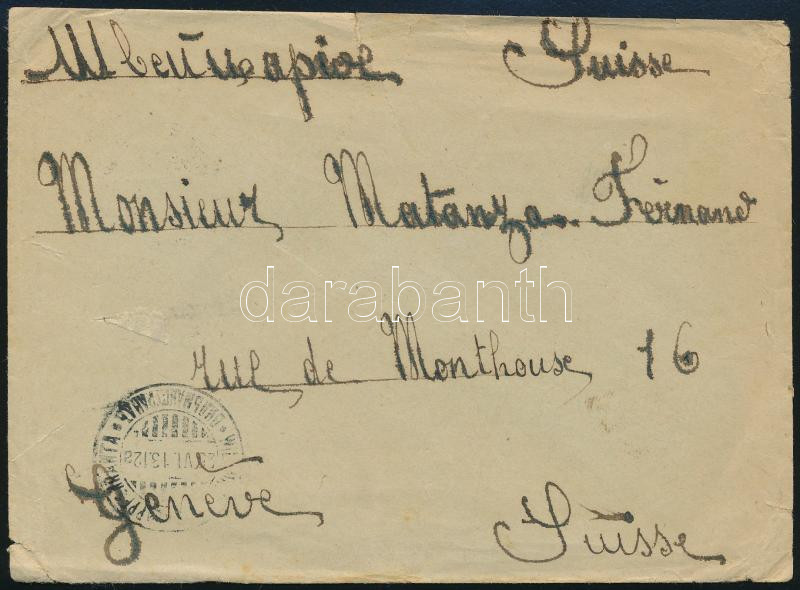 Швейцаріе Suisse
Monsieur Matanza. Fernand
darabanth
rue de Monthouse 16
VI.13.12
Genève
Suisse